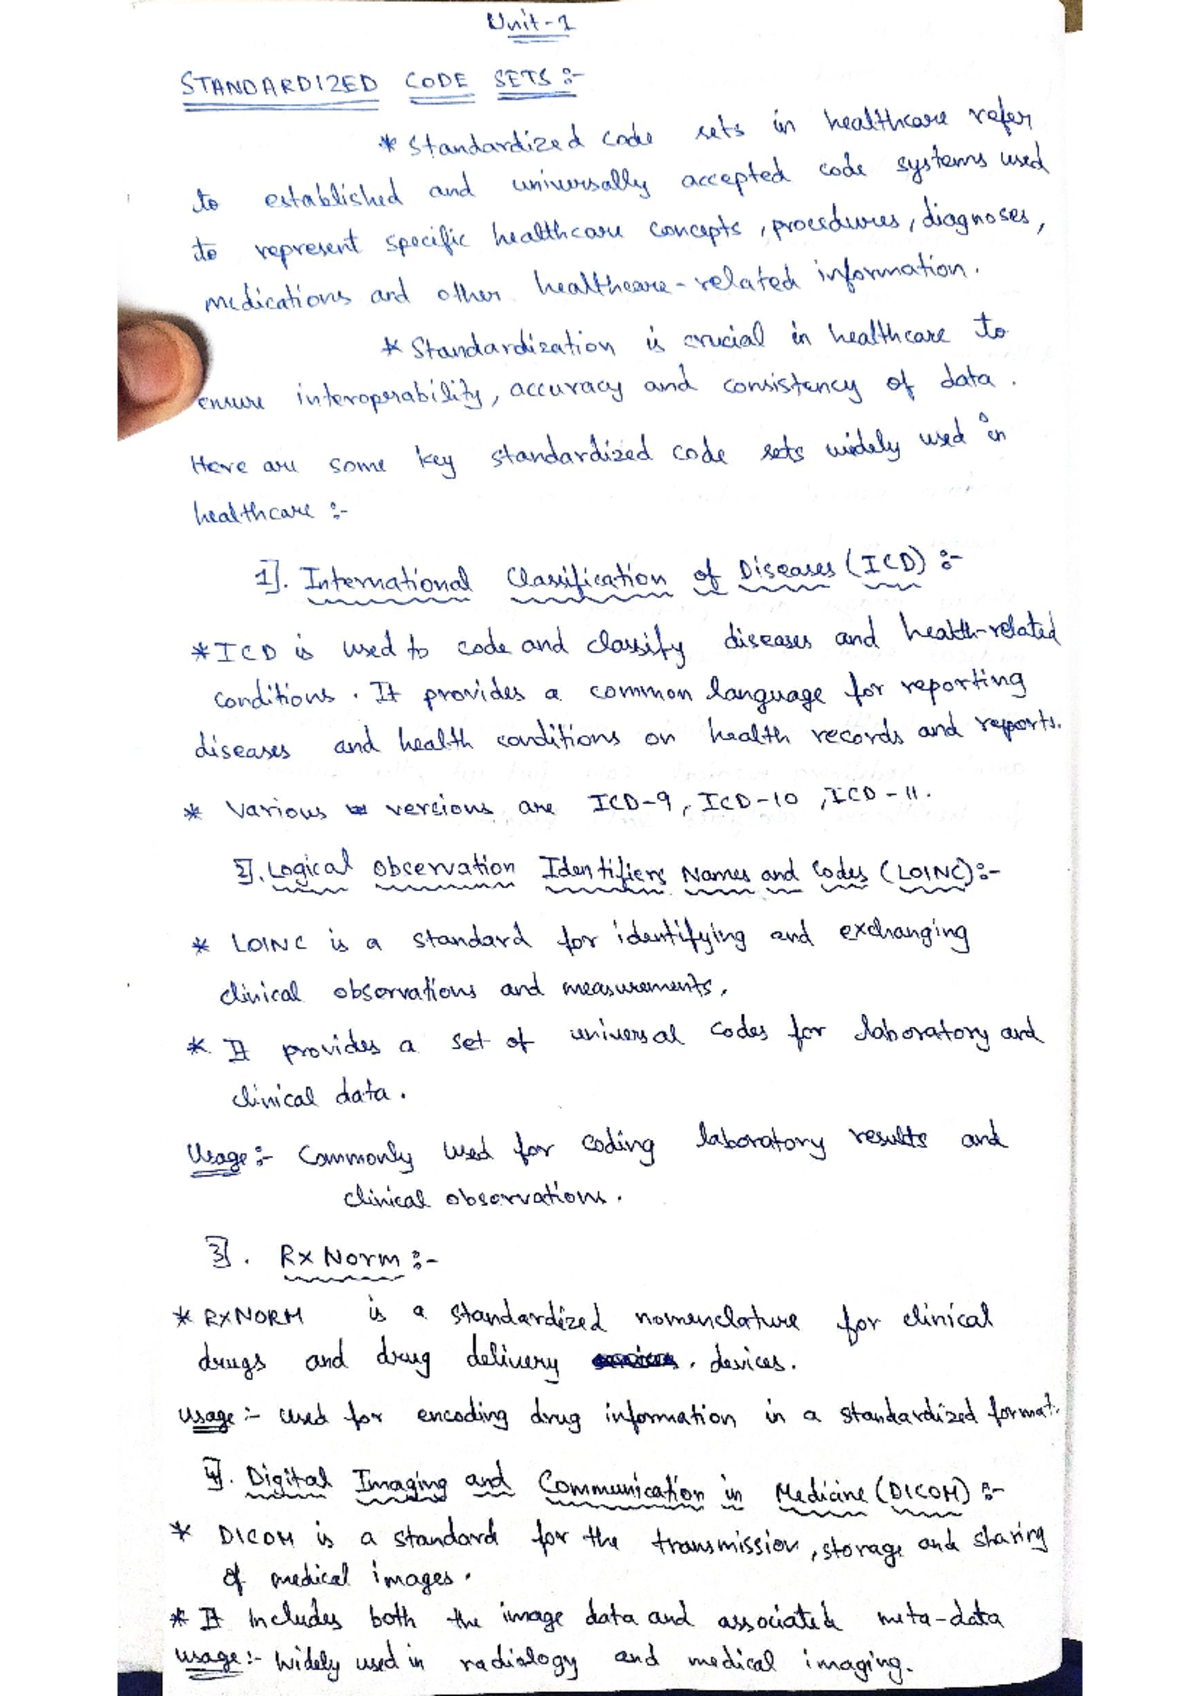 Unit-1
STANDARDIZED CODE SETS :-
* Standardized code sets in healthcare refer
to established and universally accepted code systems used
to represent specific healthcare concepts, procedures, diagnoses,
medications and other healthcare-related information.
* Standardization is crucial in healthcare to
ensure interoperability, accuracy and consistency of data.
Here are some key standardized code sets widely used in
healthcare :-
1]. International Classification of Diseases (ICD) :-
* ICD is used to code and classify diseases and health-related
conditions. It provides a common language for reporting
diseases and health conditions on health records and reports.
* Various versions are ICD-9, ICD-10, ICD-11.
2]. Logical Observation Identifiers Names and Codes (LOINC) :-
* LOINC is a standard for identifying and exchanging
clinical observations and measurements.
* It provides a set of universal codes for laboratory and
clinical data.
Usage :- Commonly used for coding laboratory results and
clinical observations.
3]. RxNorm :-
* RXNORM is a standardized nomenclature for clinical
drugs and drug delivery . devices.
Usage :- Used for encoding drug information in a standardized format.
4]. Digital Imaging and Communication in Medicine (DICOM) :-
* DICOM is a standard for the transmission, storage and sharing
of medical images.
* It Includes both the image data and associated meta-data
Usage :- Widely used in radiology and medical imaging.